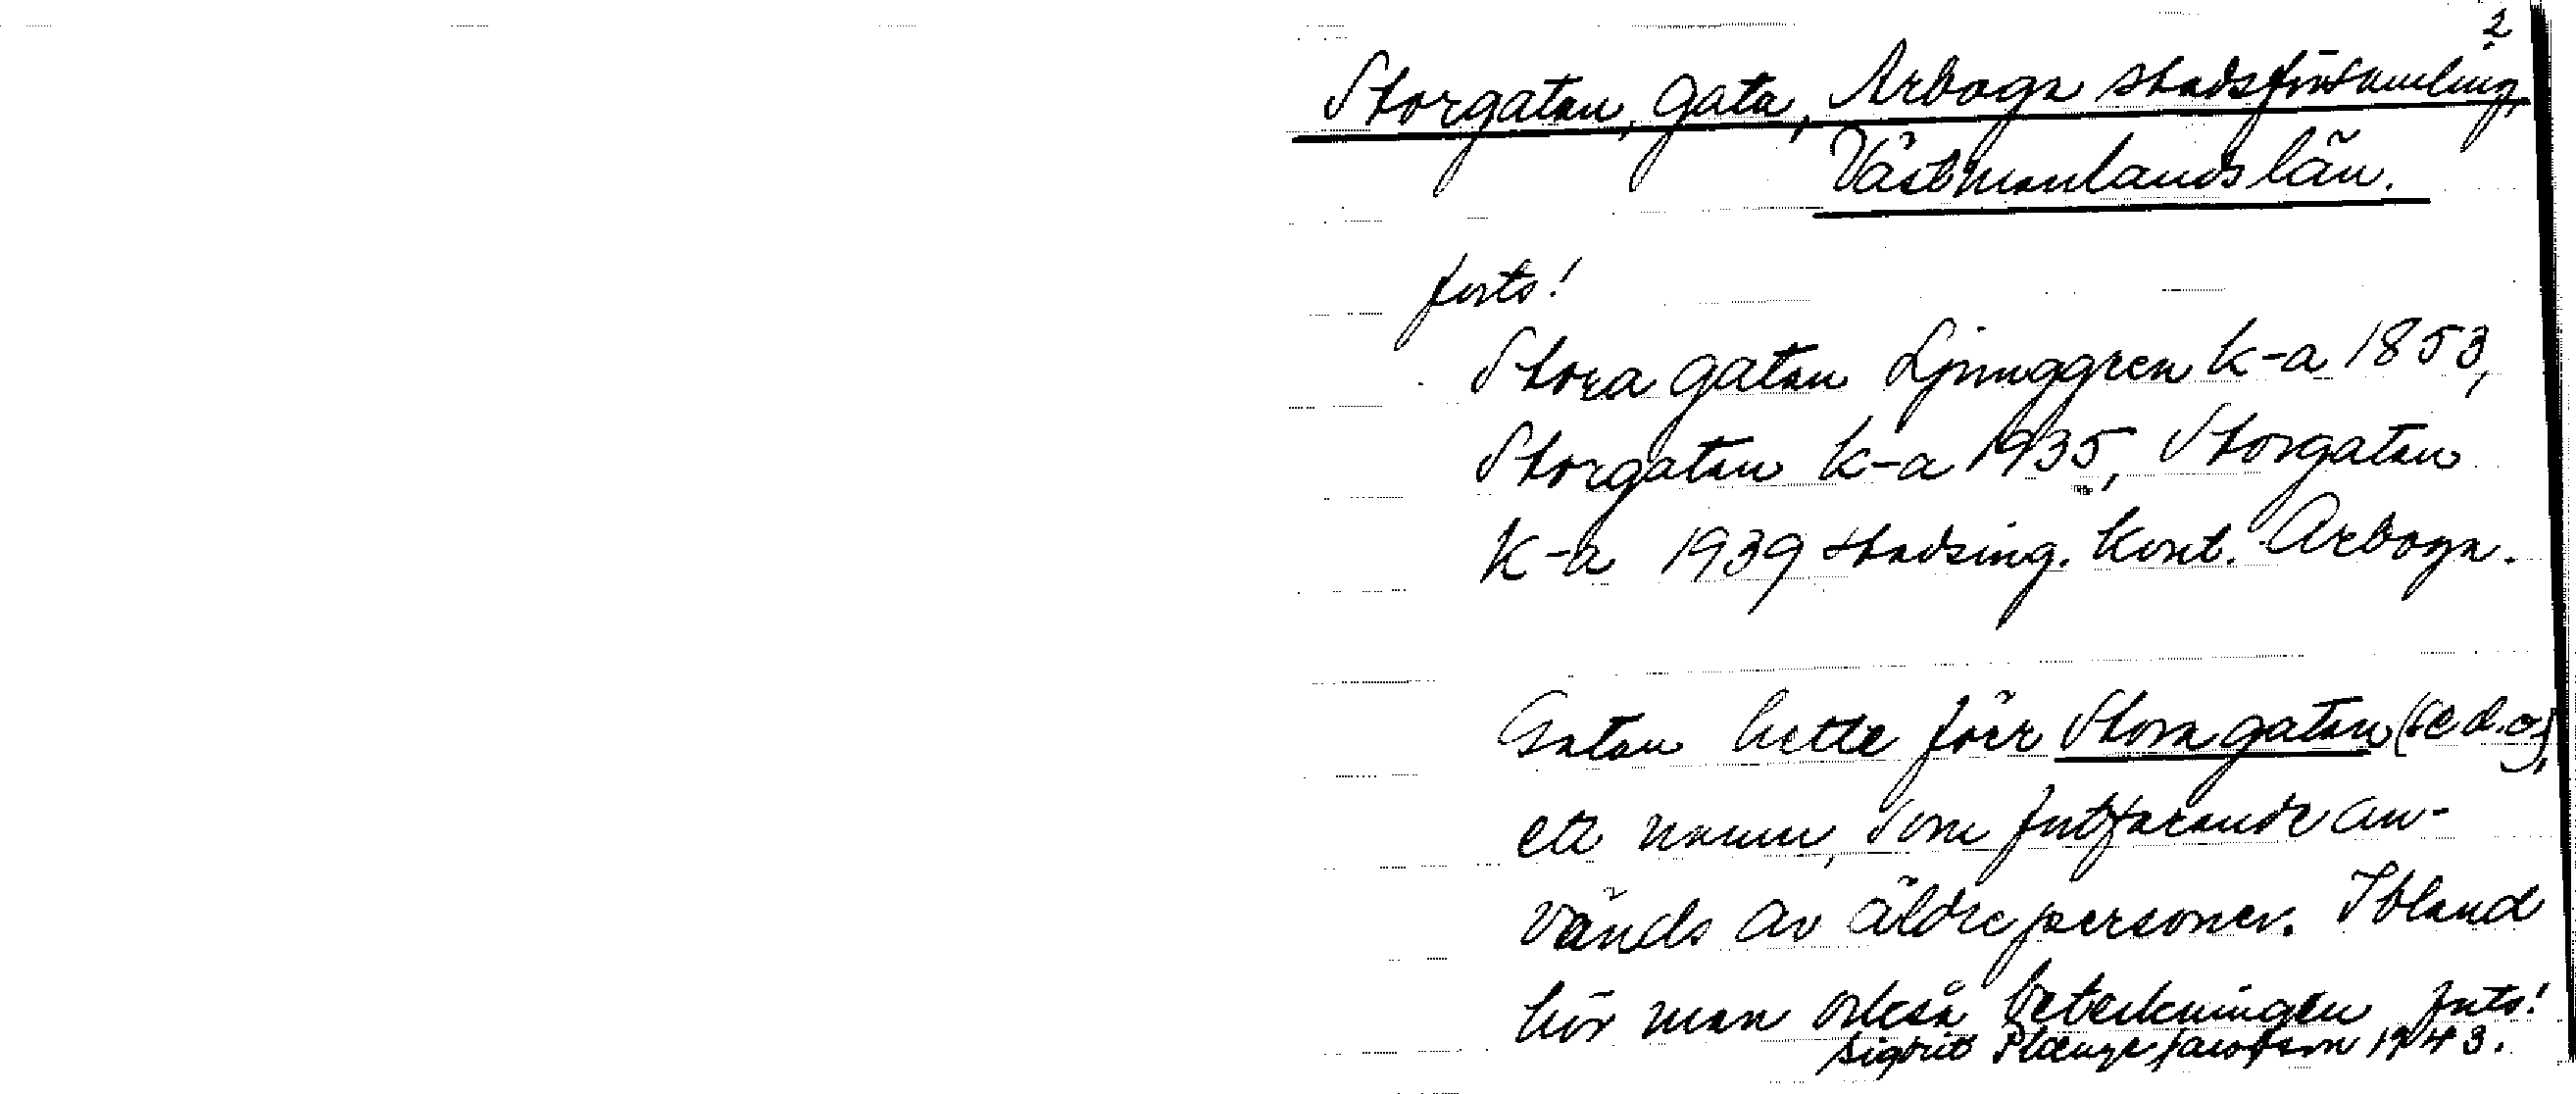 2
Storgatan, Gata, Arboga stadsförsamling,
Västmanlands län.
forts!
Stora gatan Ljunggren k-a 1853,
Storgatan k-a 1935, Storgatan
K-a 1939 stadsing. kont. Arboga.
Gatan hette förr Stora gatan (se d.o),
ett namn, som fortfarande an-
vänds av äldre personer. Ibland
hör man också beteckningen forts!
Sigrid Plaenge Jacobson 1943.